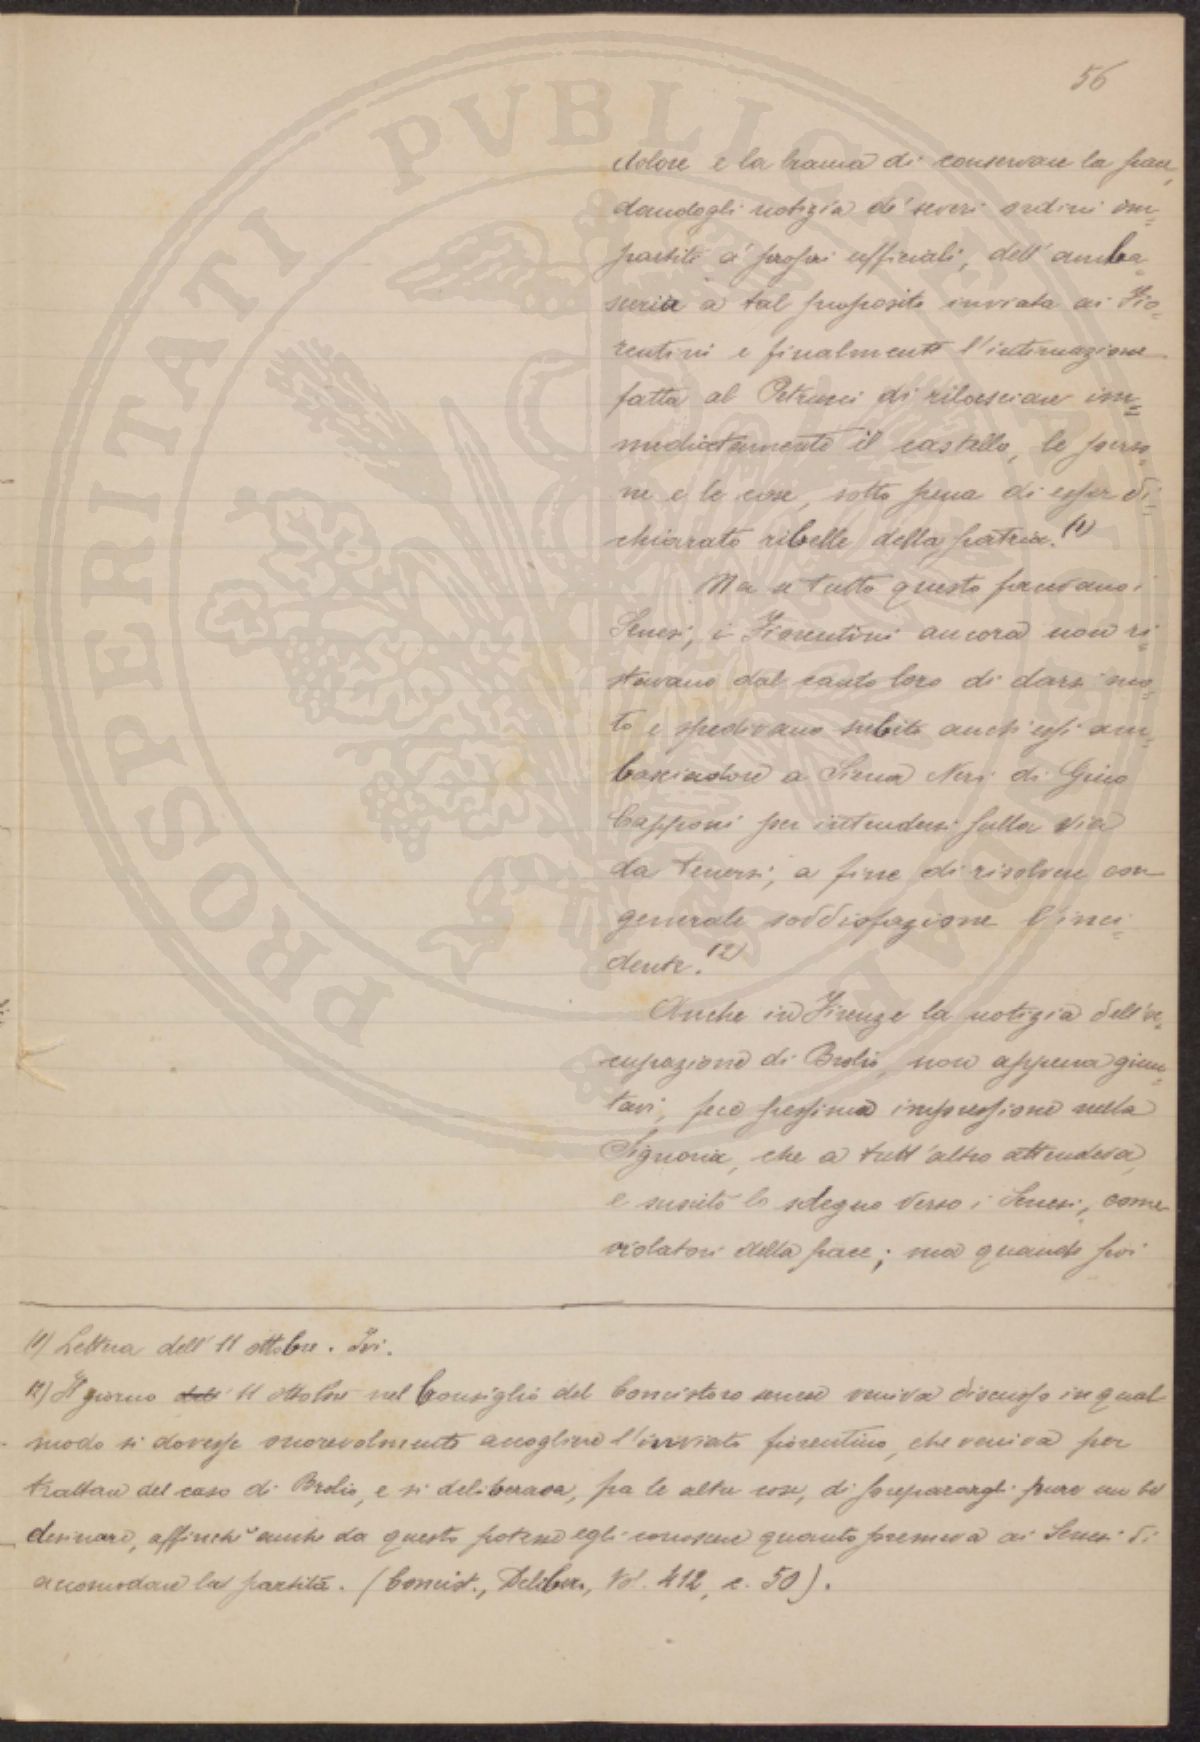 56
dolore e la brama di conservare la pace,
dandogli notizia de' severi ordini im=
partiti a' propri ufficiali, dell'amba=
sceria a tal proposito inviata ai Fio=
rentini e finalmente l'intimazione
fatta al Petrucci di rilasciare im=
mediatamente il castello, le perso=
ne e le cose, sotto pena di esser di=
chiarato ribelle della patria. (1)
Ma se tutto questo facevano i
Senesi, i Fiorentini ancora non ri=
stavano dal canto loro di darsi mo=
to e spedivano subito anch'essi am=
basciadore a Siena Neri di Gino
Capponi per intendersi sulla via
da tenersi, a fine di risolvere con
generale soddisfazione l'inci=
dente. (2)
Anche in Firenze la notizia dell'oc=
cupazione di Brolio, non appena giun=
tavi, fece pessima impressione nella
Signoria, che a tutt'altro attendeva,
e suscitò lo sdegno verso i Senesi, come
violatori della pace; ma quando poi
(1) Lettera dell'11 ottobre. Ivi.
(2) Il giorno dell' 11 ottobre nel Consiglio del Concistoro senese veniva discusso in qual
modo si dovesse onorevolmente accogliere l'inviato fiorentino, che veniva per
trattare del caso di Brolio, e si deliberava, fra le altre cose, di preparargli pure un bel
desinare, affinchè anche da questo potesse egli conoscere quanto premeva ai Senesi di
accomodare la partita. (Concist., Deliber., Vol. 412, c. 50).
PROSPERITATI PVBLICAE